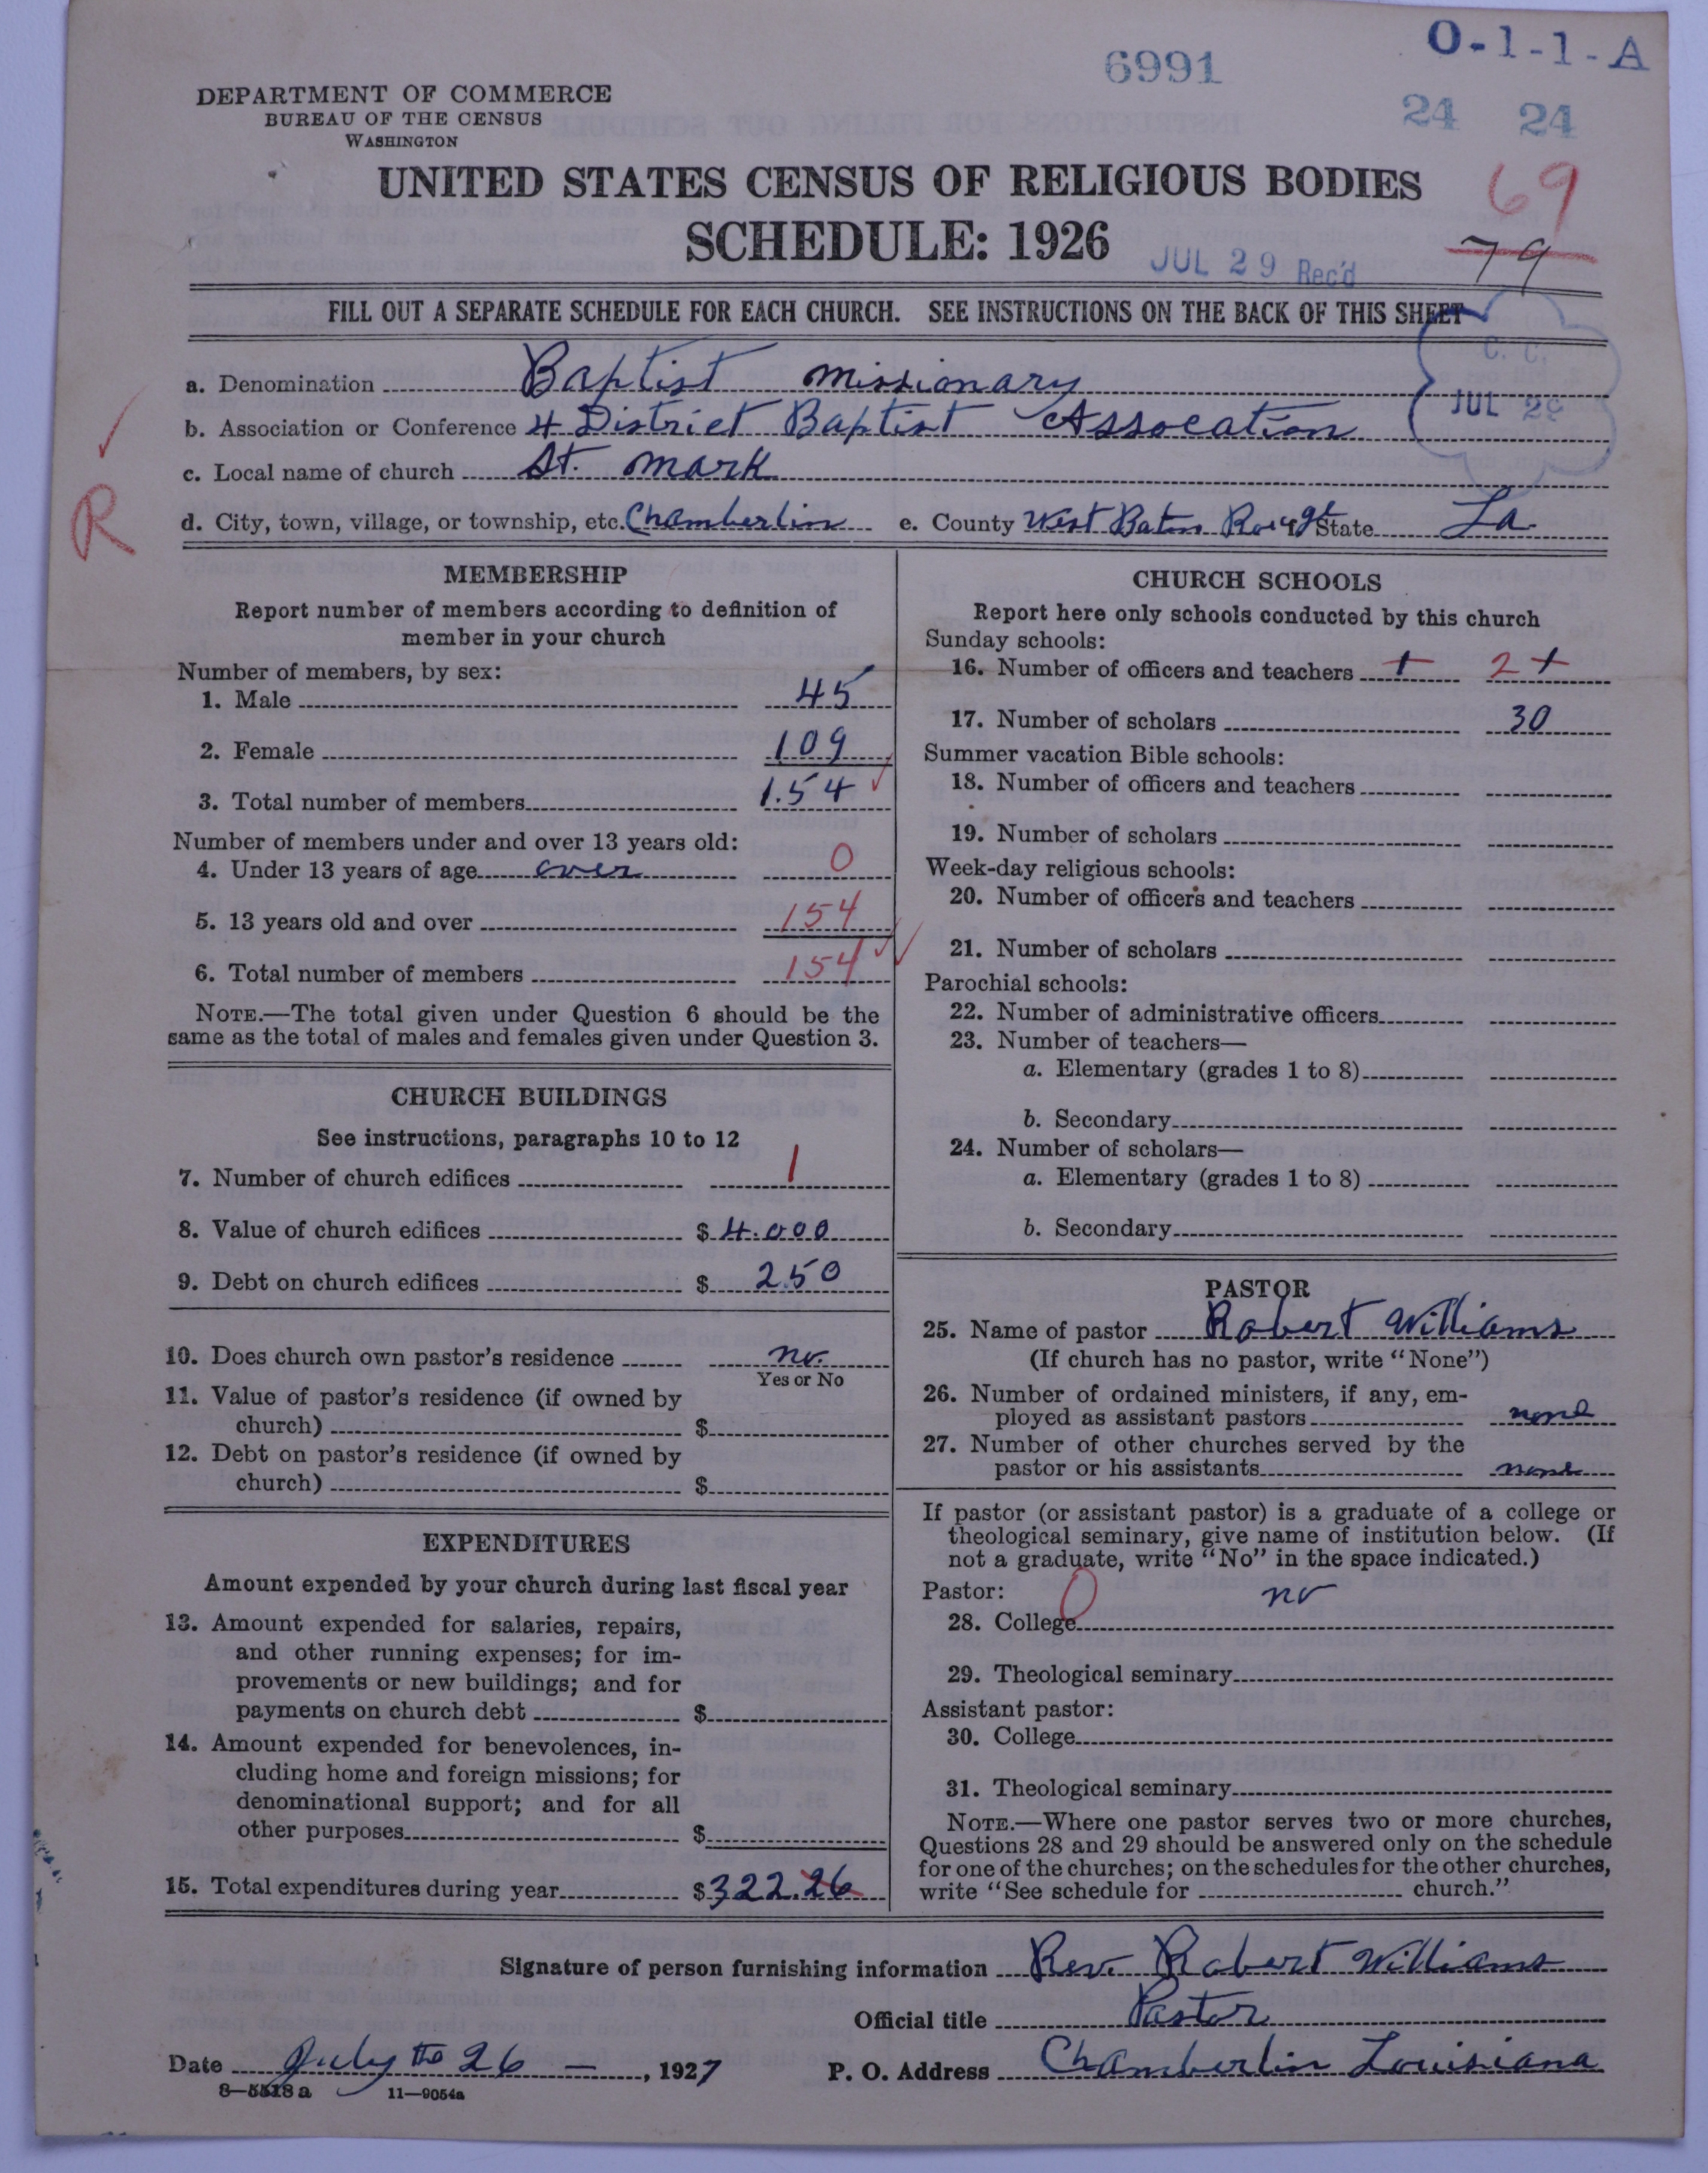 6991
O-1-1-A
24 24
DEPARTMENT OF COMMERCE
BUREAU OF THE CENSUS
WASHINGTON
UNITED STATES CENSUS OF RELIGIOUS BODIES
69
SCHEDULE: 1926
JUL 29 Rec'd
79
FILL OUT A SEPARATE SCHEDULE FOR EACH CHURCH. SEE INSTRUCTIONS ON THE BACK OF THIS SHEET
C. C.
JUL 29
a. Denomination Baptist missionary
b. Association or Conference 4 District Baptist Assocation
c. Local name of church St. mark
R
d. City, town, village, or township, etc. Chamberlin e. County West Baton Rouge State La.
MEMBERSHIP
Report number of members according to definition of
member in your church
Number of members, by sex:
1. Male 45
2. Female 109
3. Total number of members 1.54
Number of members under and over 13 years old:
4. Under 13 years of age over 0
5. 13 years old and over 154
6. Total number of members 154
NOTE.—The total given under Question 6 should be the
same as the total of males and females given under Question 3.
CHURCH BUILDINGS
See instructions, paragraphs 10 to 12
7. Number of church edifices 1
8. Value of church edifices $ 4.000
9. Debt on church edifices $ 2.50
10. Does church own pastor's residence no.
Yes or No
11. Value of pastor's residence (if owned by
church) $
12. Debt on pastor's residence (if owned by
church) $
EXPENDITURES
Amount expended by your church during last fiscal year
13. Amount expended for salaries, repairs,
and other running expenses; for im-
provements or new buildings; and for
payments on church debt $
14. Amount expended for benevolences, in-
cluding home and foreign missions; for
denominational support; and for all
other purposes $
15. Total expenditures during year $322.26
CHURCH SCHOOLS
Report here only schools conducted by this church
Sunday schools:
16. Number of officers and teachers + 2+
17. Number of scholars 30
Summer vacation Bible schools:
18. Number of officers and teachers
19. Number of scholars
Week-day religious schools:
20. Number of officers and teachers
21. Number of scholars
Parochial schools:
22. Number of administrative officers
23. Number of teachers—
a. Elementary (grades 1 to 8)
b. Secondary
24. Number of scholars—
a. Elementary (grades 1 to 8)
b. Secondary
PASTOR
25. Name of pastor Robert Williams
(If church has no pastor, write "None")
26. Number of ordained ministers, if any, em-
ployed as assistant pastors none
27. Number of other churches served by the
pastor or his assistants none
If pastor (or assistant pastor) is a graduate of a college or
theological seminary, give name of institution below. (If
not a graduate, write "No" in the space indicated.)
Pastor: 0 no
28. College
29. Theological seminary
Assistant pastor:
30. College
31. Theological seminary
NOTE.—Where one pastor serves two or more churches,
Questions 28 and 29 should be answered only on the schedule
for one of the churches; on the schedules for the other churches,
write "See schedule for church."
Signature of person furnishing information Rev. Robert Williams
Official title Pastor
Date July the 26 —, 1927 P. O. Address Chamberlin Louisiana
8—5518 a 11—9054a